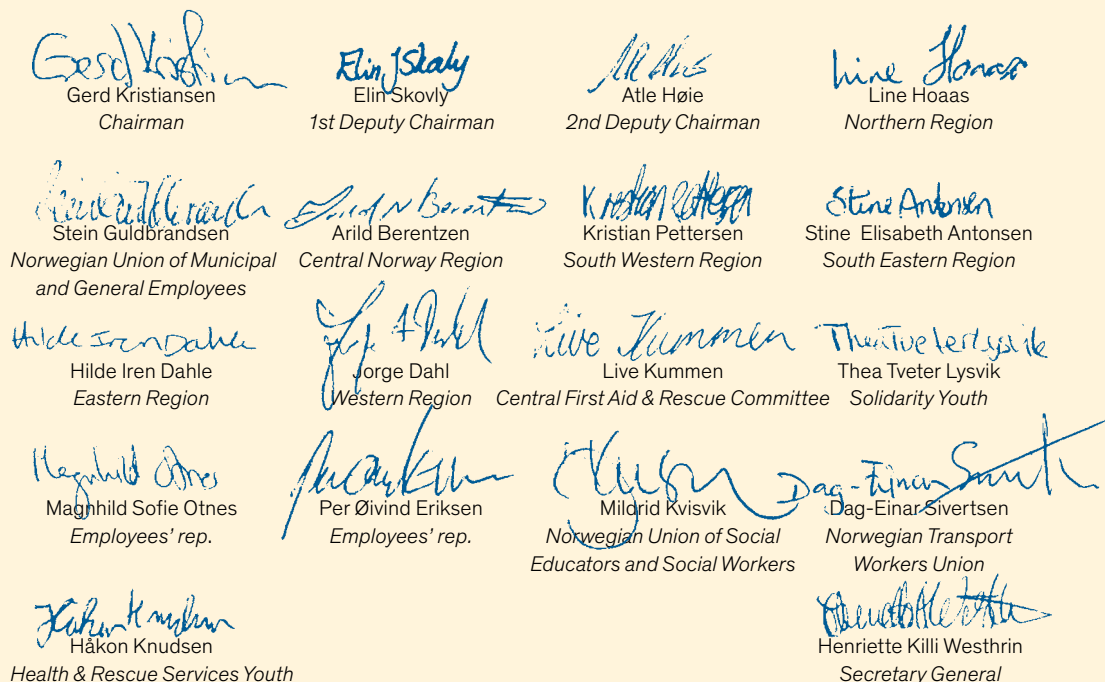 Gerd Kristiansen
Chairman
Elin Skovly
1st Deputy Chairman
Atle Høie
2nd Deputy Chairman
Line Hoaas
Northern Region
Stein Guldbrandsen
Norwegian Union of Municipal
and General Employees
Arild Berentzen
Central Norway Region
Kristian Pettersen
South Western Region
Stine Antonsen
Stine Elisabeth Antonsen
South Eastern Region
Hilde Iren Dahle
Hilde Iren Dahle
Eastern Region
Jorge Dahl
Western Region
Live Kummen
Live Kummen
Central First Aid & Rescue Committee
Thea Tveter Lysvik
Thea Tveter Lysvik
Solidarity Youth
Magnhild Sofie Otnes
Employees’ rep.
Per Øivind Eriksen
Employees’ rep.
Mildrid Kvisvik
Norwegian Union of Social
Educators and Social Workers
Dag-Einar Sivertsen
Norwegian Transport
Workers Union
Håkon Knudsen
Health & Rescue Services Youth
Henriette Killi Westhrin
Secretary General